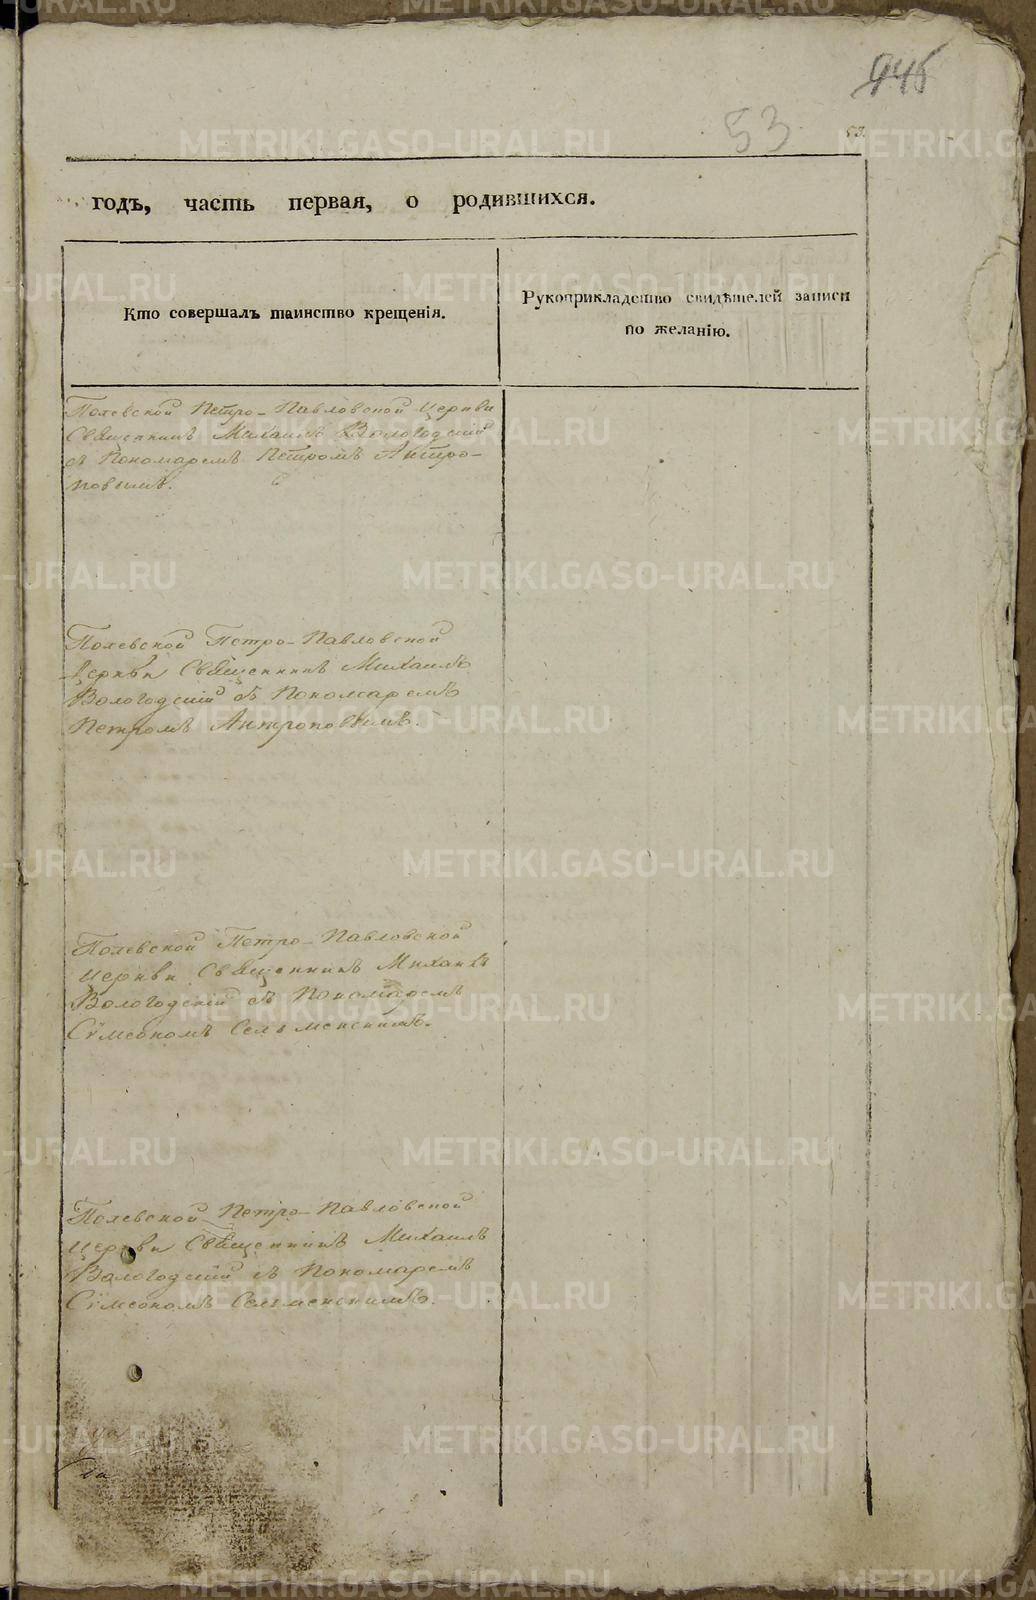 945
53
53.
годъ, часть первая, о родившихся.
Кто совершалъ таинство крещенія.
Рукоприкладство свидѣтелей записи
по желанію.
Полевской Петро-Павловской Церкви
Священникъ Михаилъ Вологодскій
съ Пономаремъ Петромъ Антро-
повымъ.
Полевской Петро-Павловской
Церкви Священникъ Михаилъ
Вологодскій съ Пономаремъ
Петромъ Антроповымъ.
Полевской Петро-Павловской
Церкви Священникъ Михаилъ
Вологодскій съ Пономаремъ
Сѵмеономъ Сельменскимъ.
Полевской Петро-Павловской
Церкви Священникъ Михаилъ
Вологодскій съ Пономаремъ
Сѵмеономъ Сельменскимъ.
METRIKI.GASO-URAL.RU